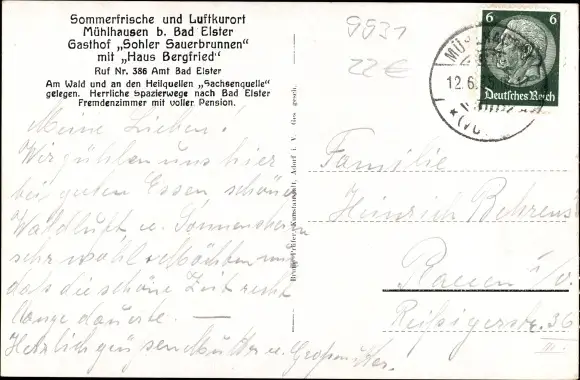 Sommerfrische und Luftkurort
Mühlhausen b. Bad Elster
Gasthof „Sohler Sauerbrunnen"
mit „Haus Bergfried"
Ruf Nr. 386 Amt Bad Elster
Am Wald und an den Heilquellen „Sachsenquelle"
gelegen. Herrliche Spazierwege nach Bad Elster
Fremdenzimmer mit voller Pension.
9931
22€
6 6
Deutsches Reich
12.6.
Meine Lieben!
Wir fühlen uns hier
bei gutem Essen, schöner
Waldluft u. Sonnenschein
sehr wohl. Möchten nur
daß die schöne Zeit recht
lange dauerte. —
Herzlich grüssen Mutter u.
Familie
Heinrich Behrens
Plauen i/V.
Reißigerstr. 36
III.
Adorf i. V. Ges. gesch.